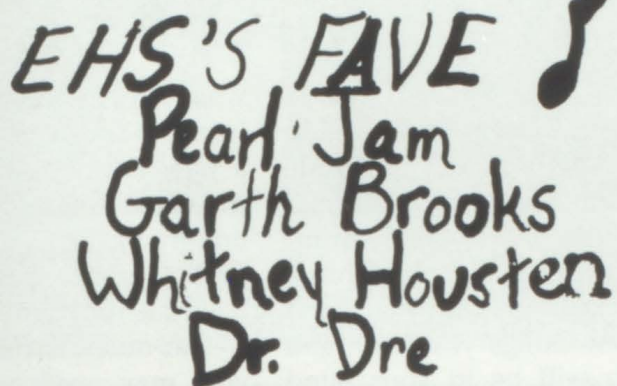 EHS'S FAVE
Pearl Jam
Garth Brooks
Whitney Housten
Dr. Dre